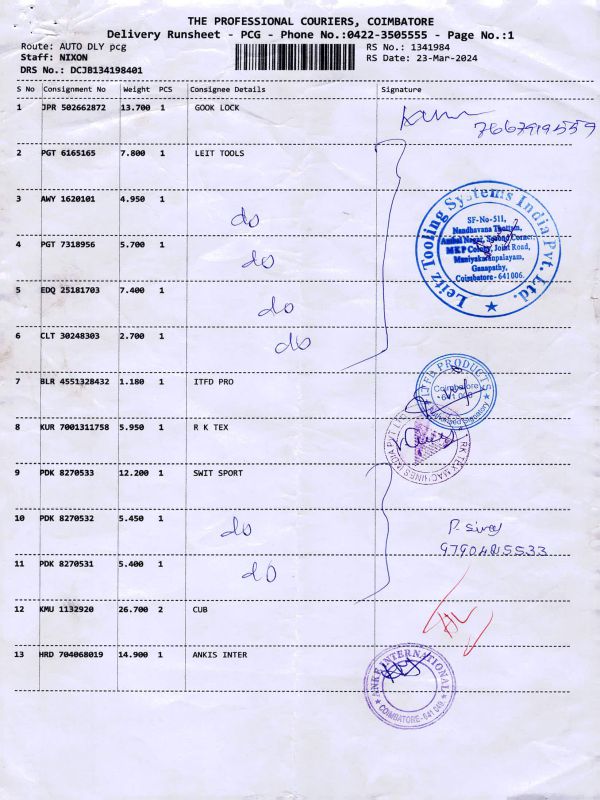 THE PROFESSIONAL COURIERS, COIMBATORE
Delivery Runsheet - PCG - Phone No.:0422-3505555 - Page No.:1
Route: AUTO DLY pcg
Staff: NIXON
DRS No.: DCJB134198401
RS No.: 1341984
RS Date: 23-Mar-2024
S No Consignment No Weight PCS Consignee Details Signature
1 JPR 502662872 13.700 1 GOOK LOCK
2 PGT 6165165 7.800 1 LEIT TOOLS
3 AWY 1620101 4.950 1 do
4 PGT 7318956 5.700 1 do
5 EDQ 25181703 7.400 1 do
6 CLT 30248303 2.700 1 do
Leitz Tooling Systems India Pvt. Ltd.
SF-No-511,
Nandhavana Thottam,
MKP Colony, Joint Road,
Maniyakaranpalayam,
Ganapathy,
Coimbatore-641006.
7 BLR 4551328432 1.180 1 ITFD PRO
ITFD PRODUCTS
Coimbatore
Authorized Signatory
8 KUR 7001311758 5.950 1 R K TEX
RK TEX MACHINES INDIA PVT LTD
9 PDK 8270533 12.200 1 SWIT SPORT
10 PDK 8270532 5.450 1 do
11 PDK 8270531 5.400 1 do
12 KMU 1132920 26.700 2 CUB
13 HRD 704068019 14.900 1 ANKIS INTER
INTERNATIONAL
COIMBATORE-641 049